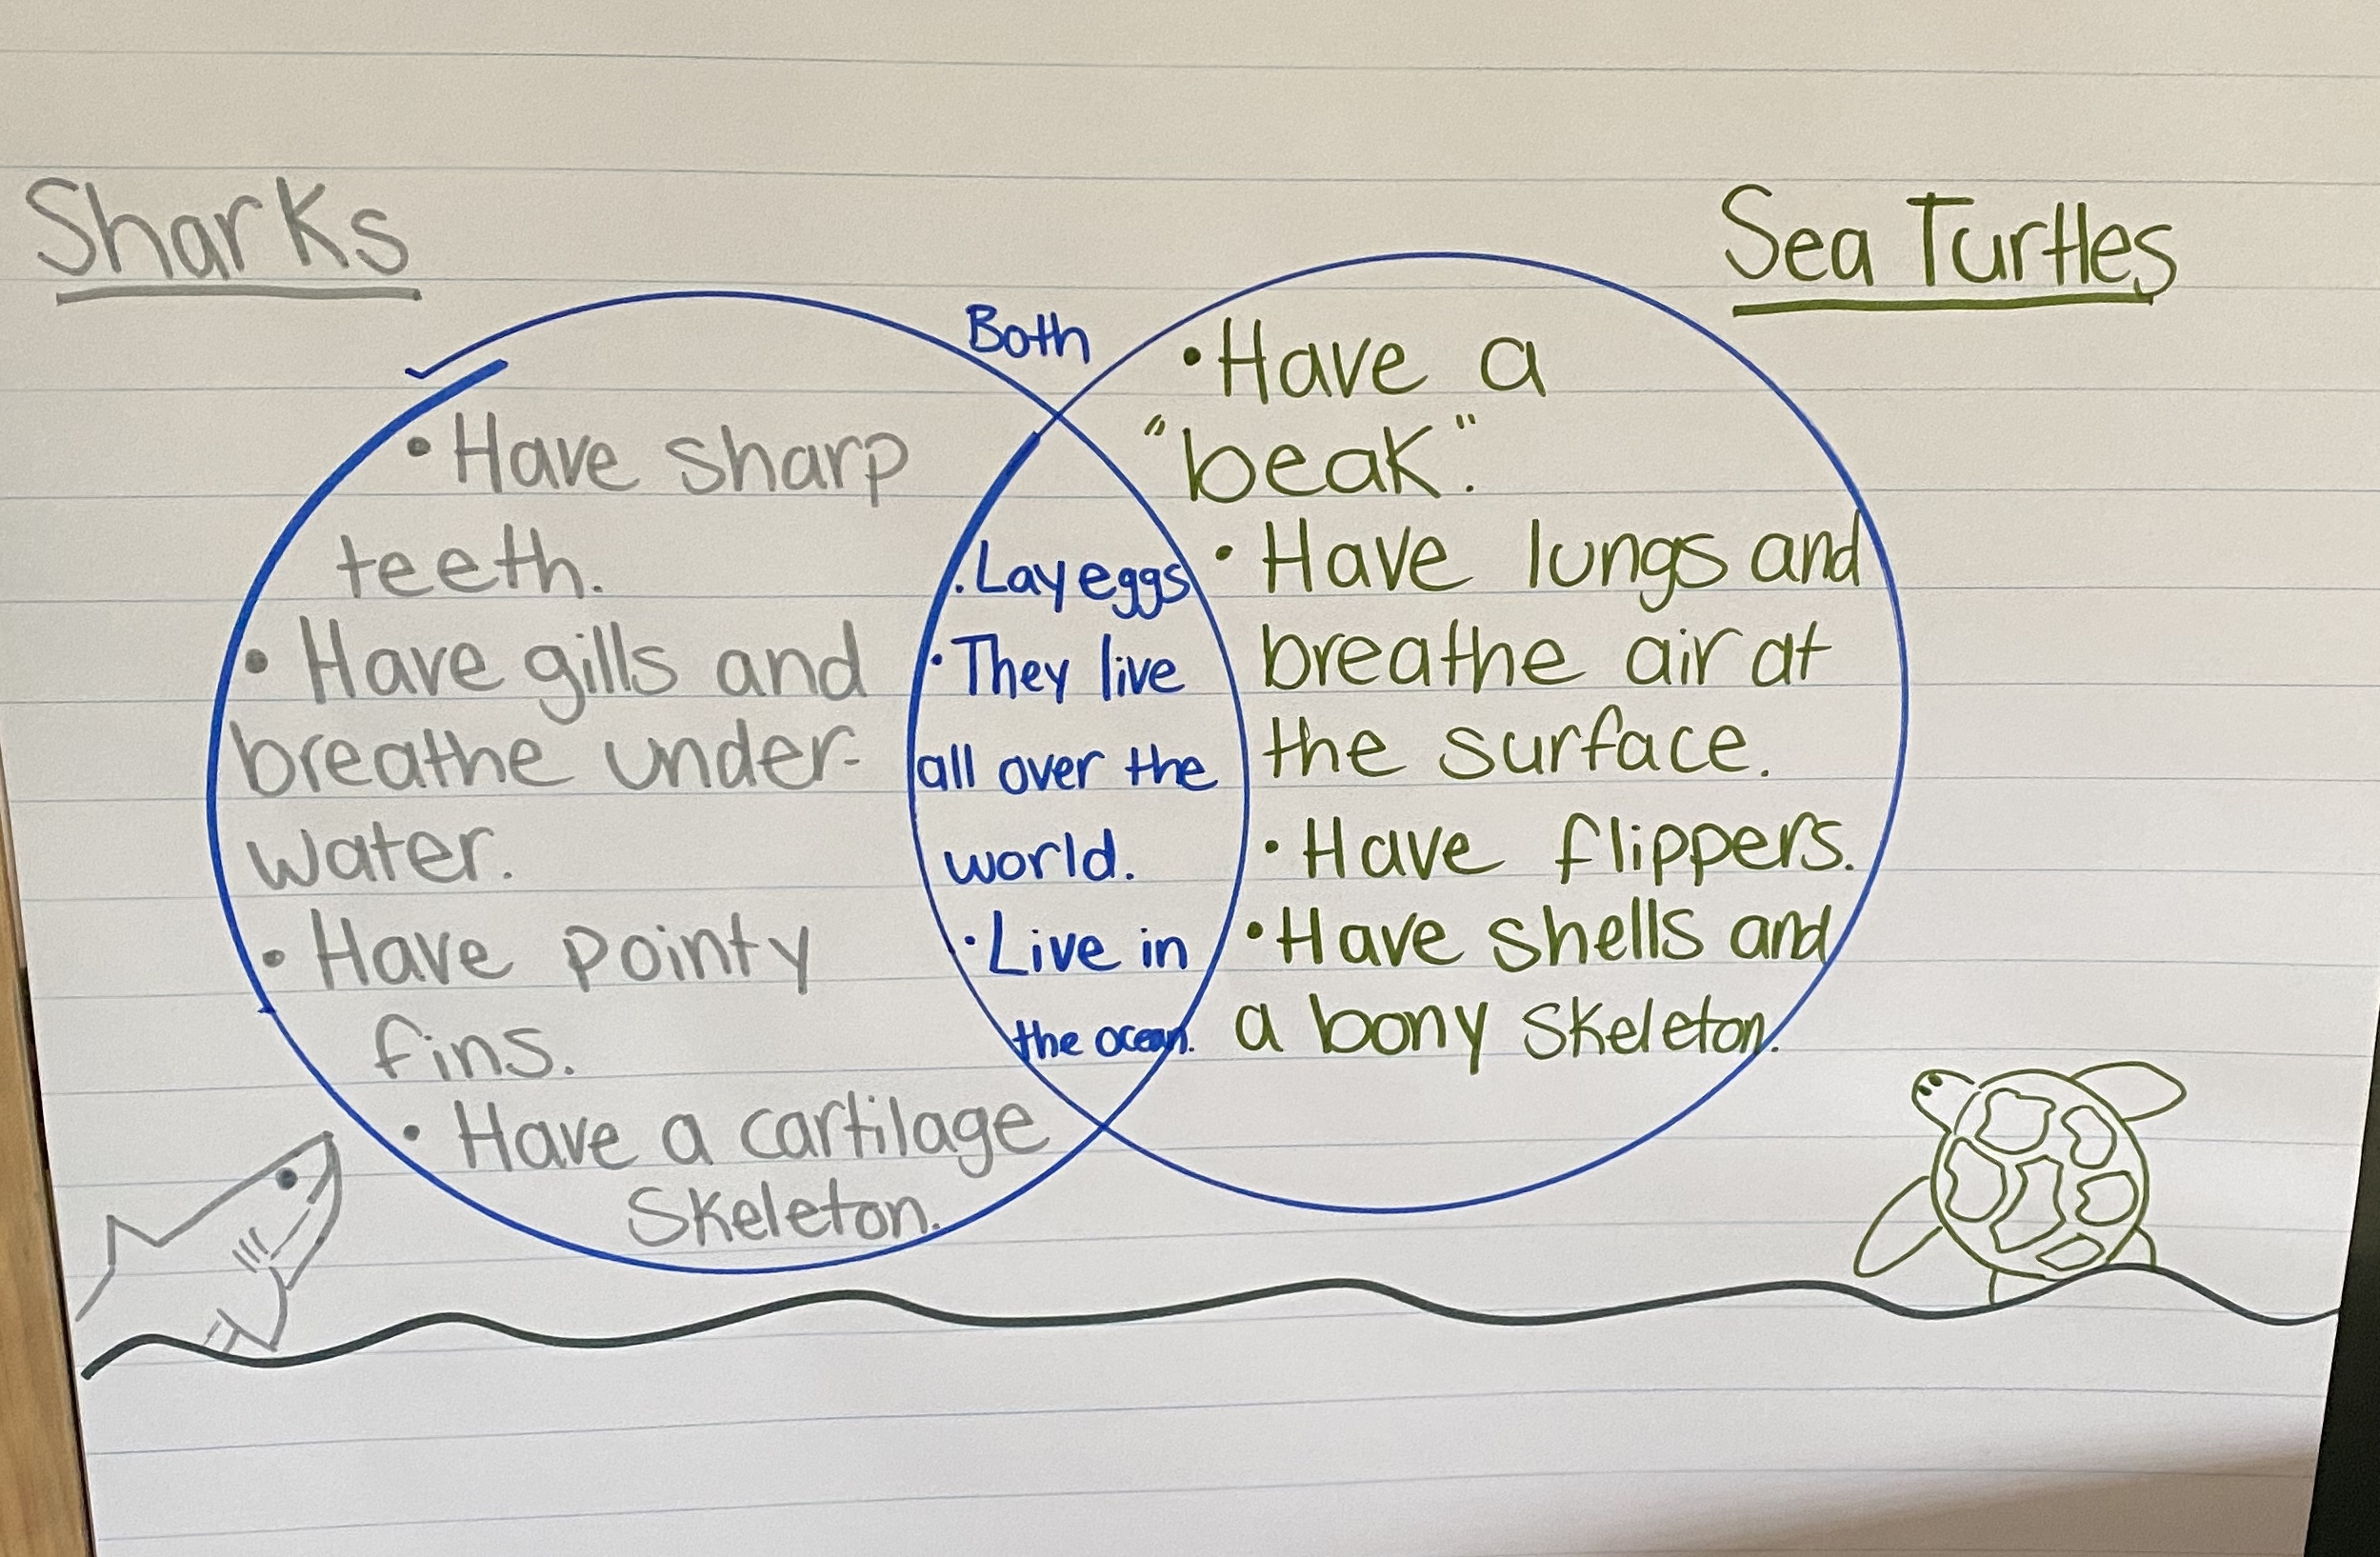 Sharks
Sea Turtles
Both
• Have sharp
teeth.
• Have gills and
breathe under-
water.
• Have pointy
fins.
• Have a cartilage
skeleton.
. Lay eggs
· They live
all over the
world.
· Live in
the ocean.
• Have a
"beak".
• Have lungs and
breathe air at
the surface.
• Have flippers.
• Have shells and
a bony skeleton.